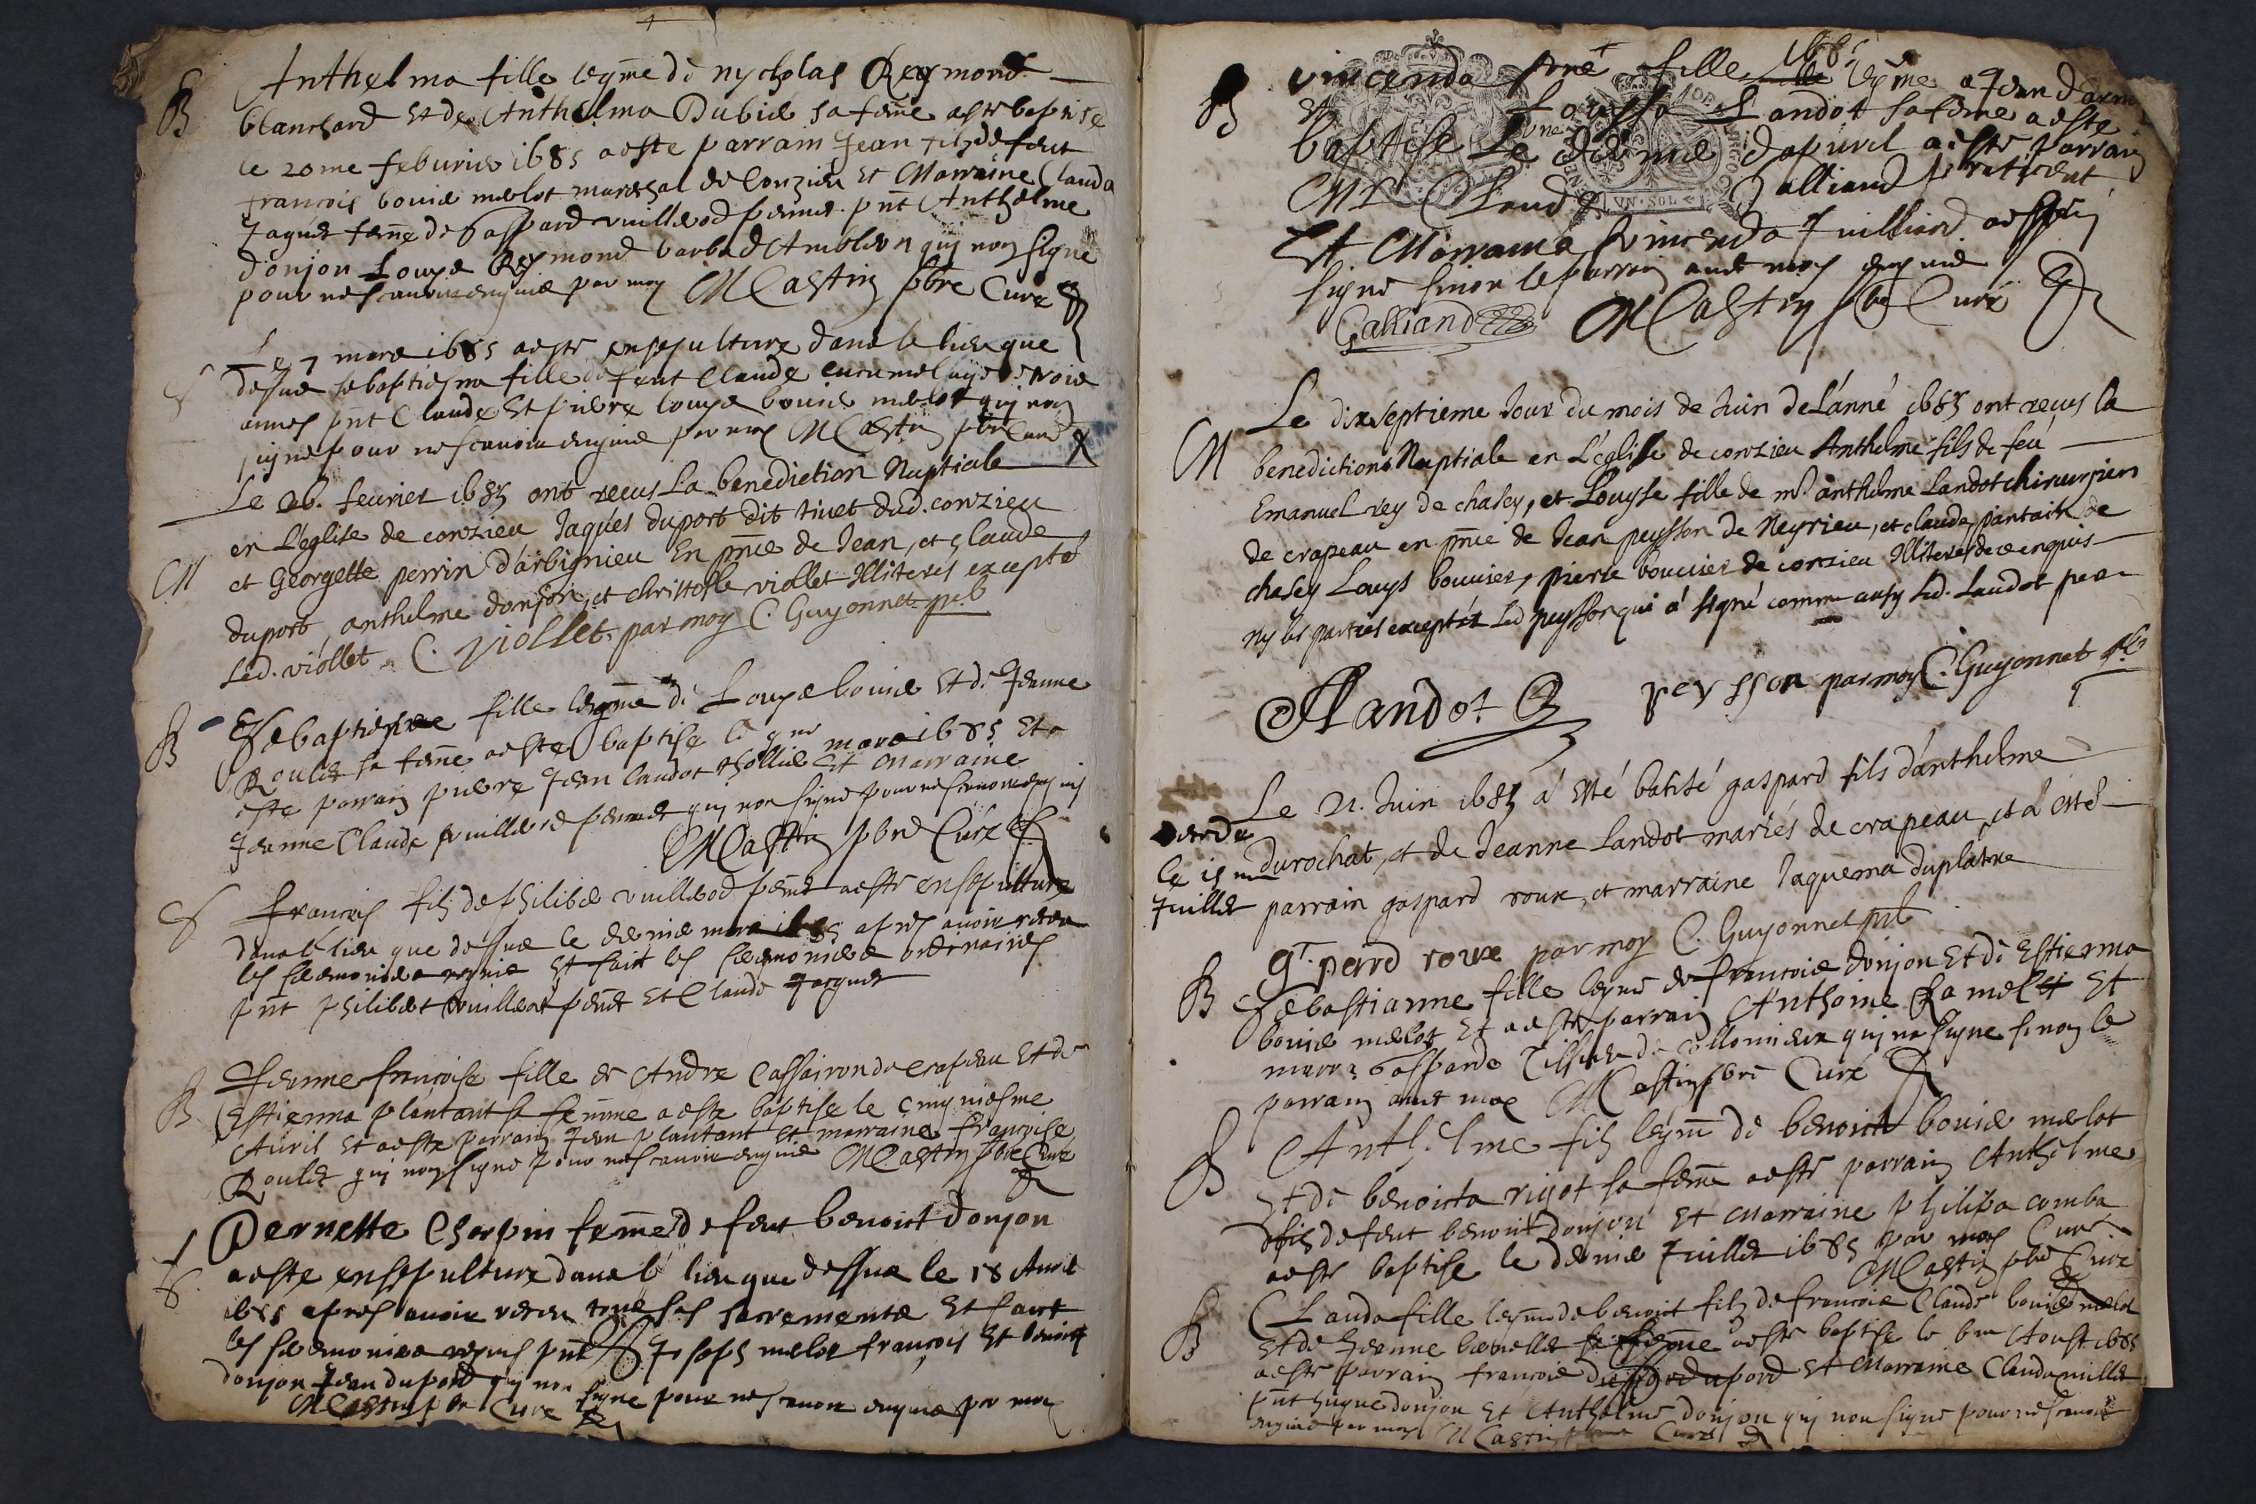 B
Anthelma fille legme de nycholas Reymond
blanchard et de Anthelma Dubie sa feme a este baptise
le 20me feburier 1685 a este parrain Jean filz de feut
françois bouie melot mareschal de Conzieu et Marraine Clauda
Jaquet feme de Gaspard vuillerod pernet pnt Anthelme
donjon Louys Reymond barbad qui non signe
pour ne scauoir enquie par moy M Castin pbre Curé
S
Le 7 mars 1685 a este ensepulture dans le lieu que
dessus sebastiesma fille de feut Claude agée de trois
annes pnt Claude et pierre Louys bouie melot qui non
signe pour ne scauoir enquie par moy M Castin pbre Curé
M
Le 26. feurier 1685 ont recus La benediction Nuptiale
en L'eglise de conzieu Jaques duport dit tiuet dud. conzieu
et Georgette perrin d'arbignieu En pnce de Jean, et claude
duport, anthelme donjon, et christofle viollet Illiterés excepté
Led. viollet C. Viollet. par moy C. Guyonnet. pb
B
Sebaptiesme fille legme de Louys bouie et de Jeanne
Roulet sa feme a este baptise le mars 1685 et a
este parrain pierre Jean landot thollie et marraine
Jeanne Claude vuillerod pernet qui non signe pour ne scauoir enquis
M Castin pbre Curé
S
françois filz de philibe vuillerod pernet a este ensepulture
dans le lieu que dessus le dernie mars 1685 apres auoir receu
les seremonies requie et faict les seremonies ordenaires
pnt philibert vuillerod pernet et Claude Jacquet
B
Jeanne françoise fille de Andre Cassairon de crapeau et de
Estienna plantant sa femme a este baptise le cinquiesme
Auril et a este parrain Jean plantant et marraine françoise
Roulet qui non signe pour ne scauoir enquie M Castin pbre Curé
S
Pernette Charpin feme de feut benoict donjon
a este ensepulture dans le lieu que dessus le 18 Auril
1685 apres auoir receu tous ses sacrements et faict
les seremonies requis pnt Joseph melot françois et benoict
donjon Jean duport qui non signe pour ne scauoir enquie par moy
M Castin pbre Curé
1685
B
vincenda fille legme a Jean
et Louysa Landot sa feme a este
baptise Le d'apuril a este parrain
Mr Claude Galliand praticient
Et Marraine vincenda Juilliard
signe sinon le parrain auec moy enquie
Galliand M Castin pbre Curé
M
Le dixseptieme Jour du mois de Juin de L'anné 1685 ont recus la
benediction Nuptiale en L'église de conzieu Anthelme fils de feu
Emanuel rey de chasey, et Louyse fille de mr anthelme Landot chirurgien
de crapeau en pnce de Jean peysson de Neyrieu, et claude pantait de
chasey Louys bouuier, pierre bouuier de conzieu Illiterés de ce enquis
ny les parties excepté Led peysson qui a signé comme aussy Led. Landot pere
A Landot peysson par moy C. Guyonnet pb
Le 21. Juin 1685 à esté batisé gaspard fils d'anthelme
durochat, et de Jeanne Landot mariés de crapeau, et à esté
Le 15 m
Juillet
parrain gaspard roux, et marraine Jaquema duplatre
roux par moy C. Guyonnet pb
B
Sebastianne fille legme de françois donjon et de Estienna
bouie melot et a este parrain Anthoine Ramel et
marr: Gasparde Tissier de collomieux qui na signe sinon le
parrain auec moy M Castin pbre Curé
B
Anthelme filz legm de benoict bouie melot
et de benoicta rigot sa feme a este parrain Anthelme
filz de feut benoict donjon et marraine philipa comba
a este baptise le dernie Juillet 1685 par moy Curé
M Castin pbre Curé
B
Clauda fille legme de benoict filz de françois Claude bouie melot
et de Jeanne sa feme a este baptise le Aoust 1685
a este parrain françois dupord et Marraine Clauda millet
pnt hugue donjon et Anthelme donjon qui non signe pour ne scauoir
enquie par moy M Castin pbre Curé
VN·SOL